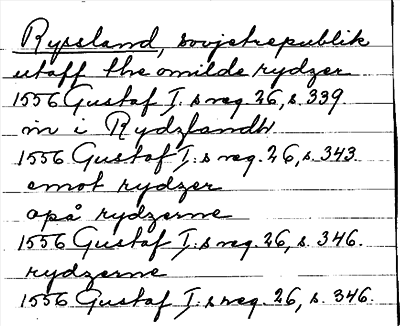 Ryssland, sovjetrepublik
utaff the omilde rydzer
1556 Gustaf I:s reg. 26, s. 339.
in i Rydzlandh
1556 Gustaf I:s reg. 26, s. 343.
emot rydzer
opå rydzerne
1556 Gustaf I:s reg. 26, s. 346.
rydzerne
1556 Gustaf I:s reg. 26, s. 346.